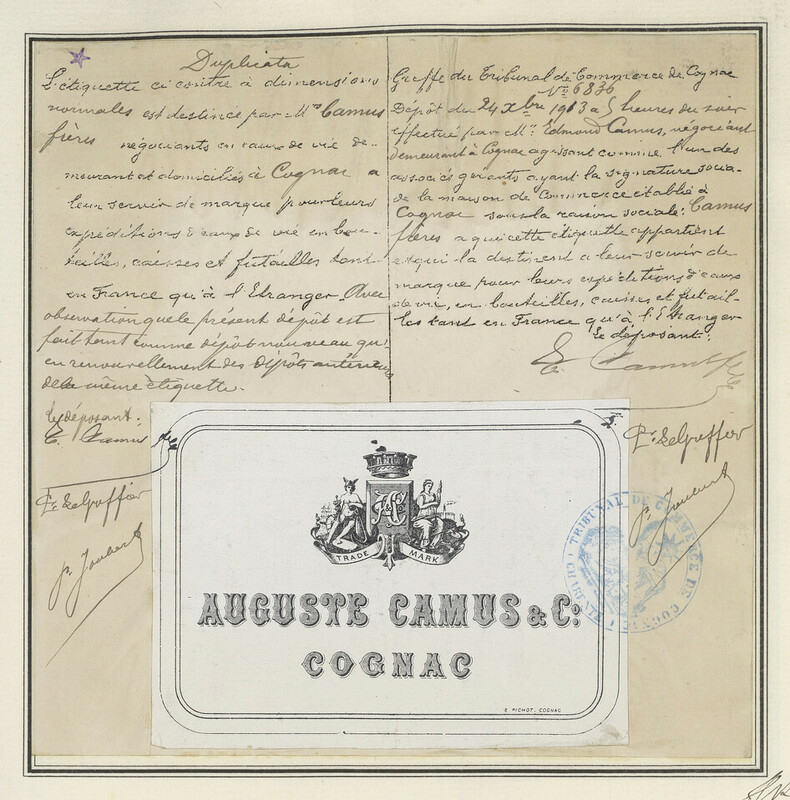 Duplicata
L'étiquette ci contre à dimensions
normales est destinée par Mrs Camus
frères négociants en eaux de vie de-
meurant et domiciliés à Cognac a
leur servir de marque pour leurs
expéditions d'eaux de vie en bou-
teilles, caisses et futailles tant
en France qu'à l'Etranger Avec
observation que le présent dépôt est
fait tant comme dépôt nouveau qu'
en renouvellement des dépôts antérieurs
de la même étiquette.
le déposant:
E. Camus
Pr. le Greffier
Greffe du Tribunal de Commerce de Cognac
No 6836
Dépôt du 24 Xbre 1913 a 5 heures du soir
effectué par Mr. Edmond Camus, négociant
demeurant à Cognac agissant comme l'un des
associés gérants ayant la signature socia-
de la maison de Commerce établie à
Cognac sous la raison sociale: Camus
frères a qui cette étiquette appartient
et qui la destinent a leur servir de
marque pour leurs expéditions d'eaux
de vie, en bouteilles, caisses et futail-
les tant en France qu'à l'Etranger
le déposant:
E. Camus
Pr. le Greffier
TRADE MARK
AUGUSTE CAMUS & Co.
COGNAC
E. PICHOT, COGNAC
TRIBUNAL DE COMMERCE DE COGNAC